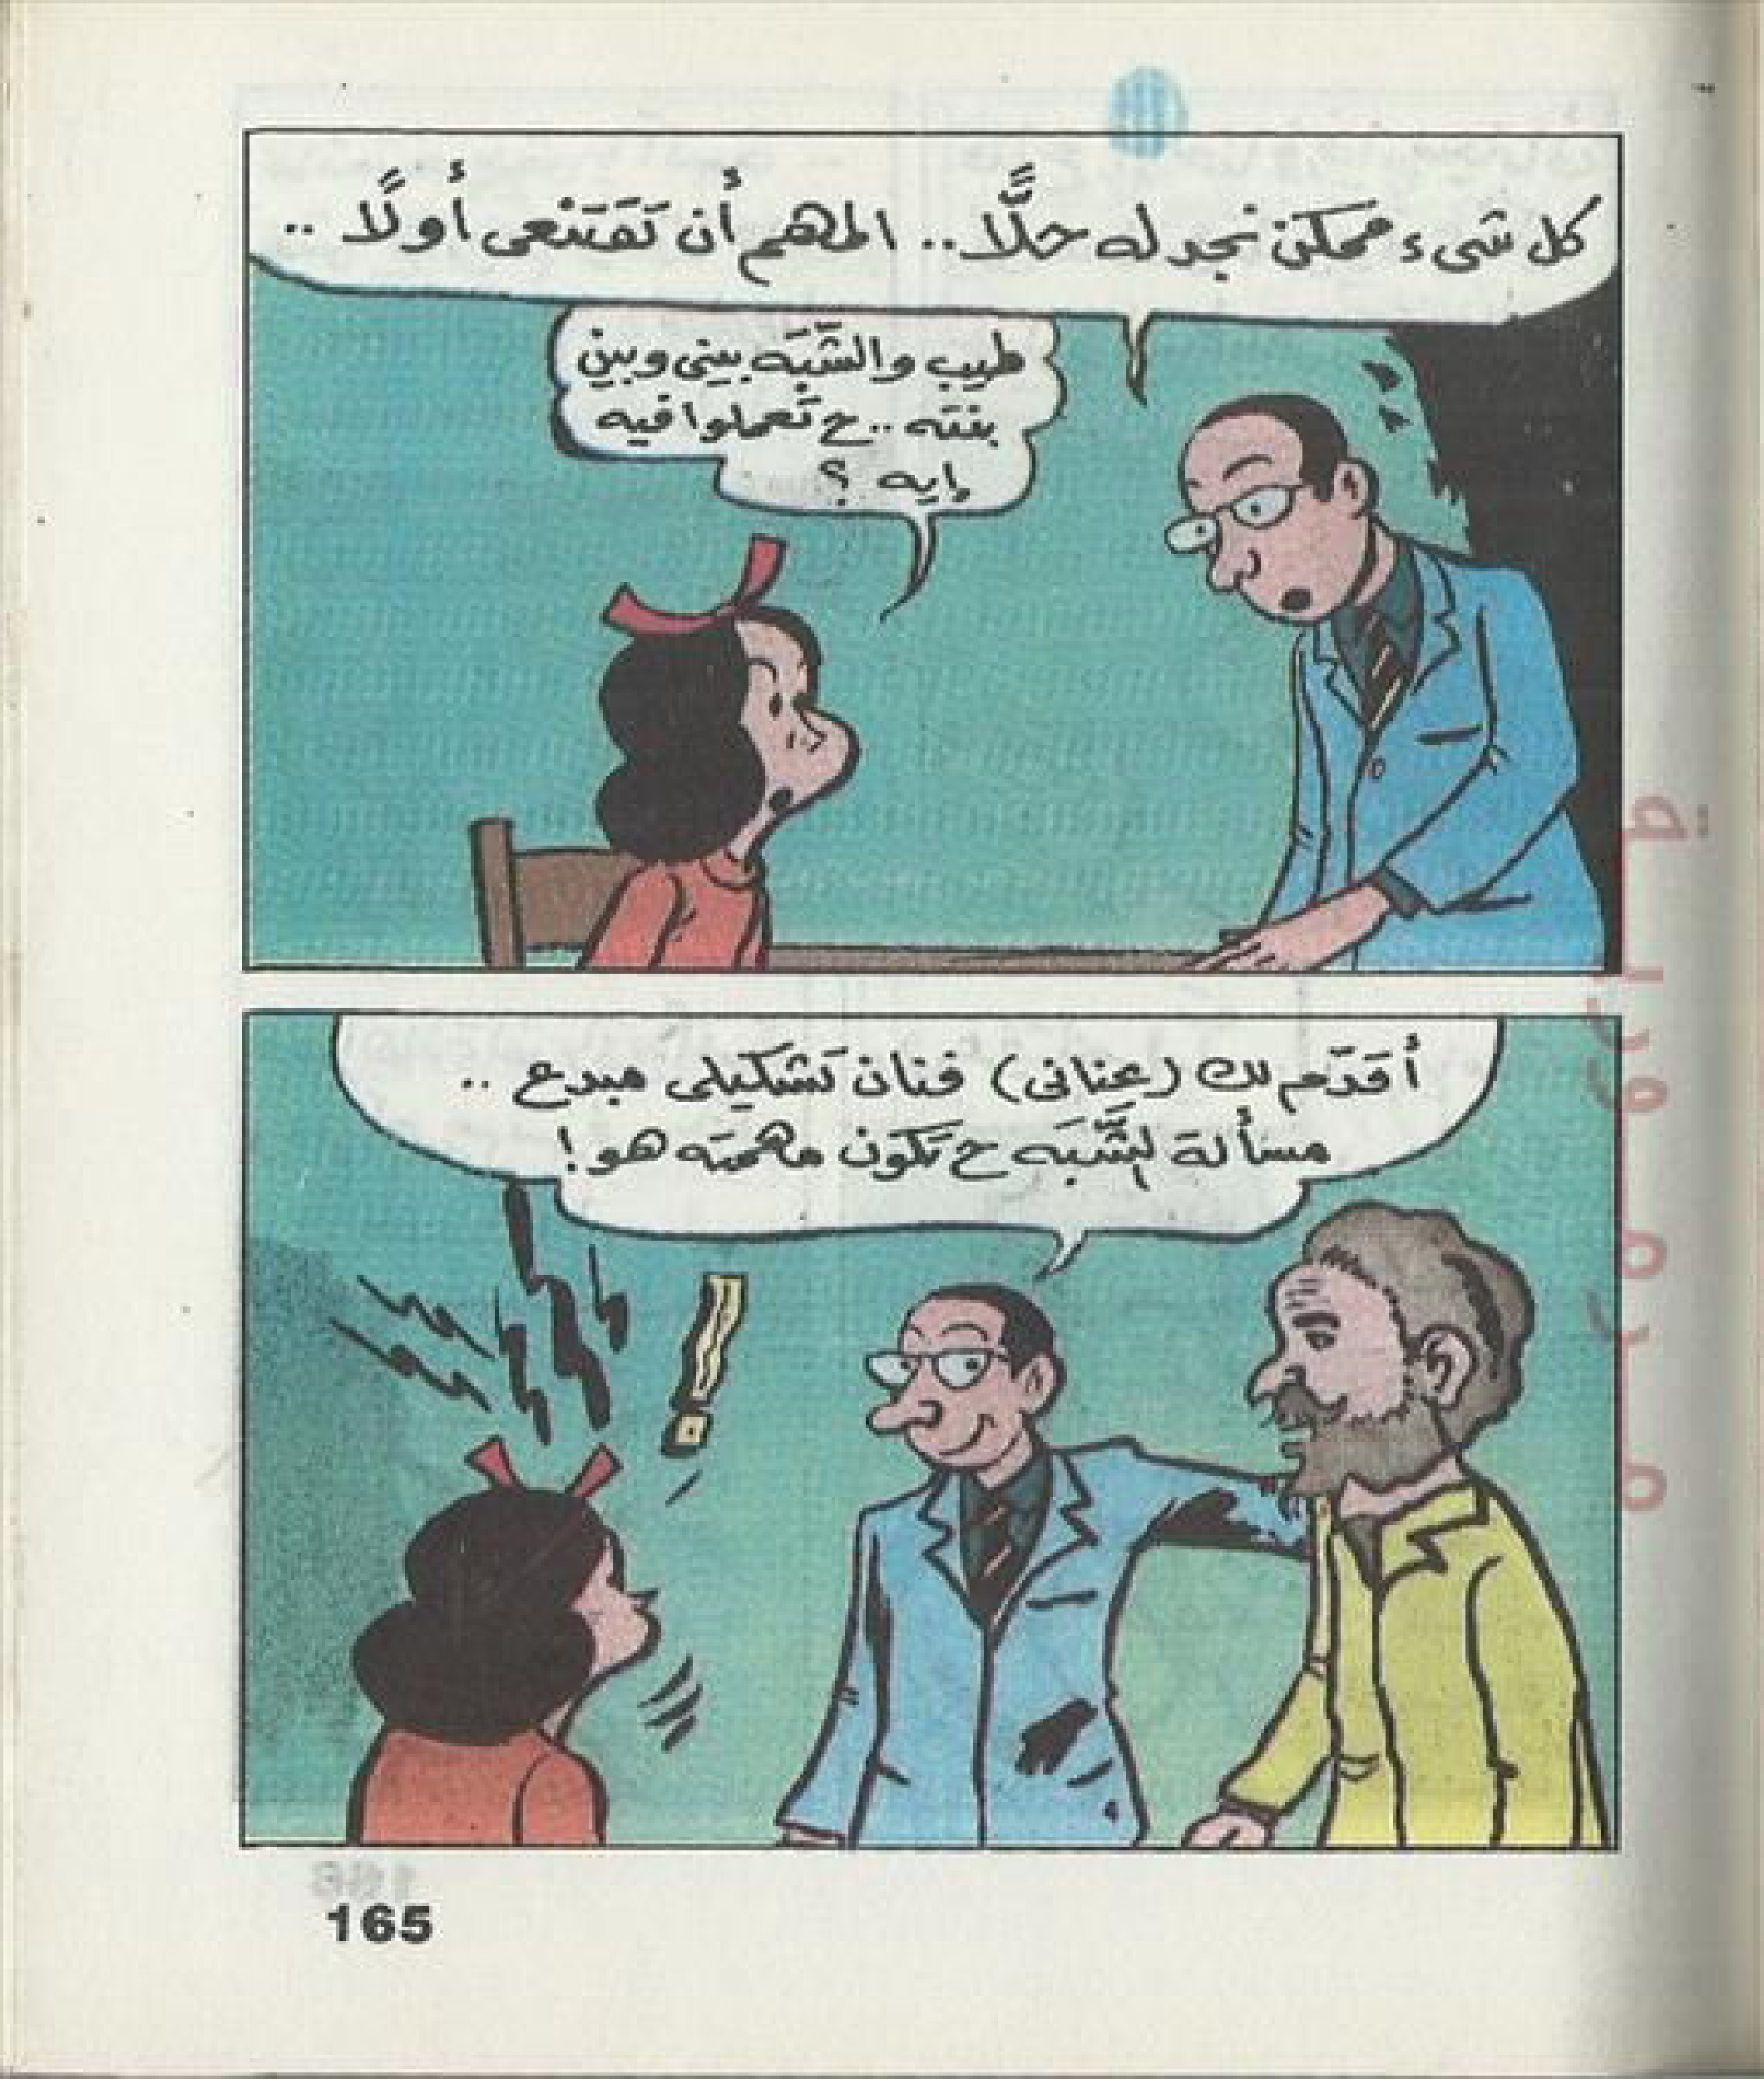 كل شىء ممكن نجد له حلًّا.. المهم أن تَقتَنعى أولًا ..
طيب والشَّبَه بينى وبين
بنته .. ح تَعملوا فيه
إيه ؟
أقدّم لك (عنانى) فنان تَشكيلى مبدع ..
مسألة الشَّبَه ح تَكوّن مهمته هو!
165